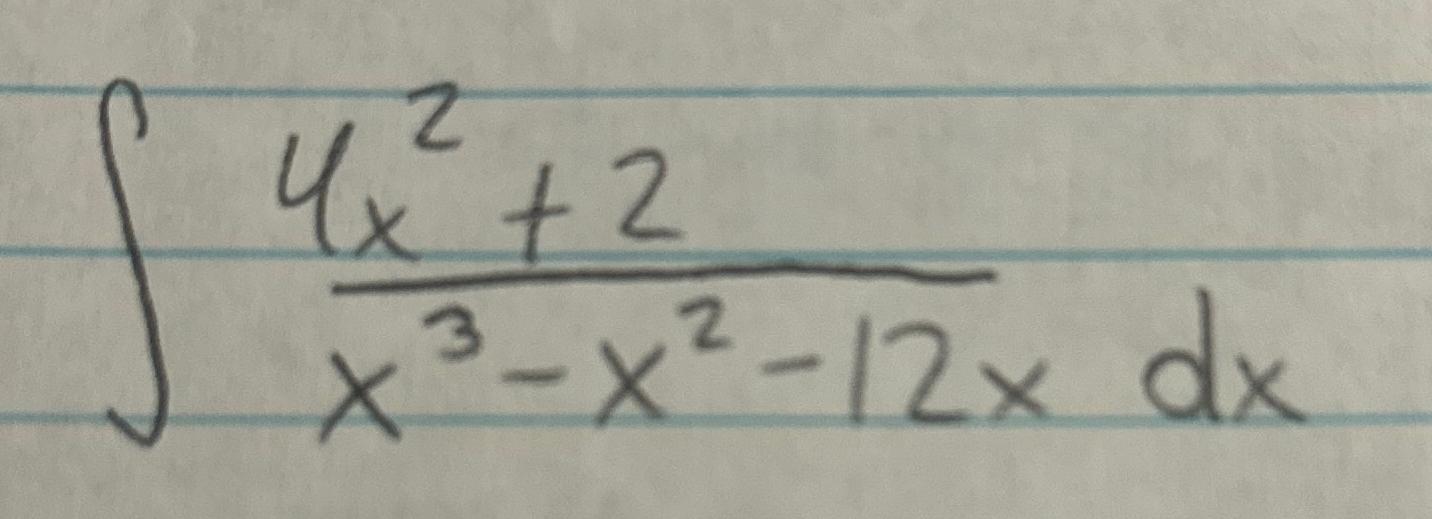 ∫ (4x² + 2)/(x³ - x² - 12x) dx